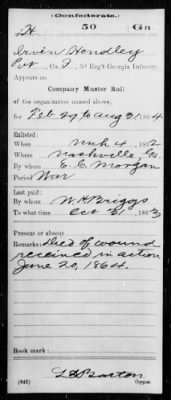 (Confederate.)
H 50 Ga
Irvin Hendley
Pvt, Co. I, 50 Reg't Georgia Infantry.
Appears on
Company Muster Roll
of the organization named above,
for Feb 29 to Aug 31, 1864
Enlisted:
When Mch 4, 1862
Where Nashville, Ga.
By whom E. C. Morgan
Period War
Last paid:
By whom W. H. Briggs
To what time Oct 31, 1863
Present or absent
Remarks: Died of wound
received in action
June 20, 1864.
Book mark:
(642) Copyist.